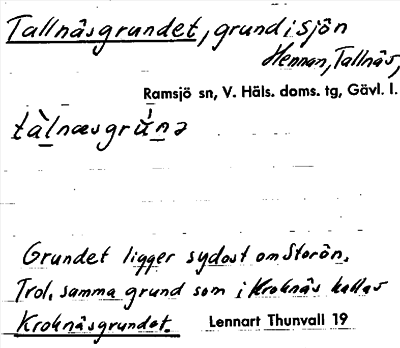 Tallnäsgrundet, grund i sjön
Hennan, Tallnäs,
Ramsjö sn, V. Häls. doms. tg, Gävl. l.
tàlnæsgrúnə
Grundet ligger sydost om Storön.
Trol. samma grund som i Kroknäs kallas
Kroknäsgrundet.
Lennart Thunvall 19